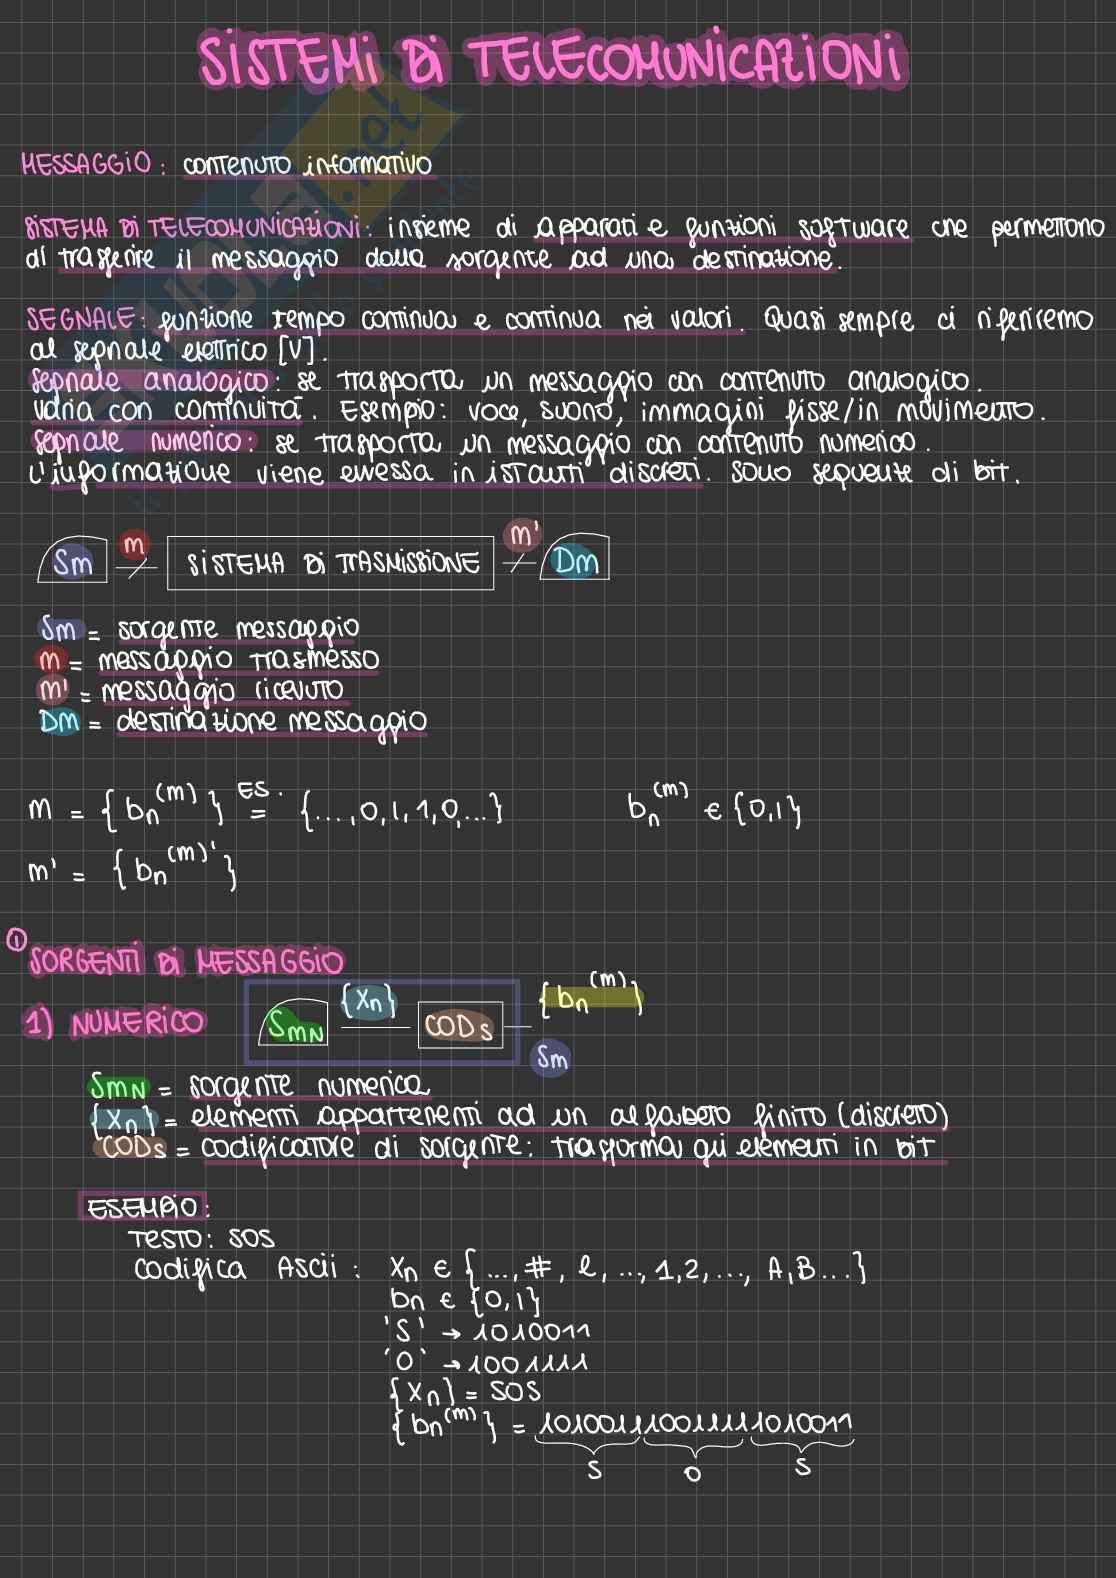 SISTEMI DI TELECOMUNICAZIONI
MESSAGGIO: contenuto informativo
SISTEMA DI TELECOMUNICAZIONI: insieme di apparati e funzioni software che permettono
di trasferire il messaggio dalla sorgente ad una destinazione.
SEGNALE: funzione tempo continua e continua nei valori. Quasi sempre ci riferiremo
al segnale elettrico [V].
segnale analogico: se trasporta un messaggio con contenuto analogico.
varia con continuità. Esempio: voce, suono, immagini fisse/in movimento.
segnale numerico: se trasporta un messaggio con contenuto numerico.
L'informazione viene emessa in istanti discreti. sono sequenze di bit.
Sm m SISTEMA DI TRASMISSIONE m' Dm
Sm = sorgente messaggio
m = messaggio trasmesso
m' = messaggio ricevuto
Dm = destinazione messaggio
m = {bn(m)} ES. = {...,0,1,1,0,...} bn(m) ∈ {0,1}
m' = {bn(m)'}
① SORGENTI DI MESSAGGIO
1) NUMERICO SMN {Xn} CODs {bn(m)}
Sm
SMN = sorgente numerica
{Xn} = elementi appartenenti ad un alfabeto finito (discreto)
CODs = codificatore di sorgente: trasforma gli elementi in bit
ESEMPIO:
TESTO: SOS
codifica Ascii: Xn ∈ {...,#, l, ..., 1,2, ..., A,B...}
bn ∈ {0,1}
'S' → 1010011
'O' → 1001111
{Xn} = SOS
{bn(m)} = 101001110011111010011
S O S